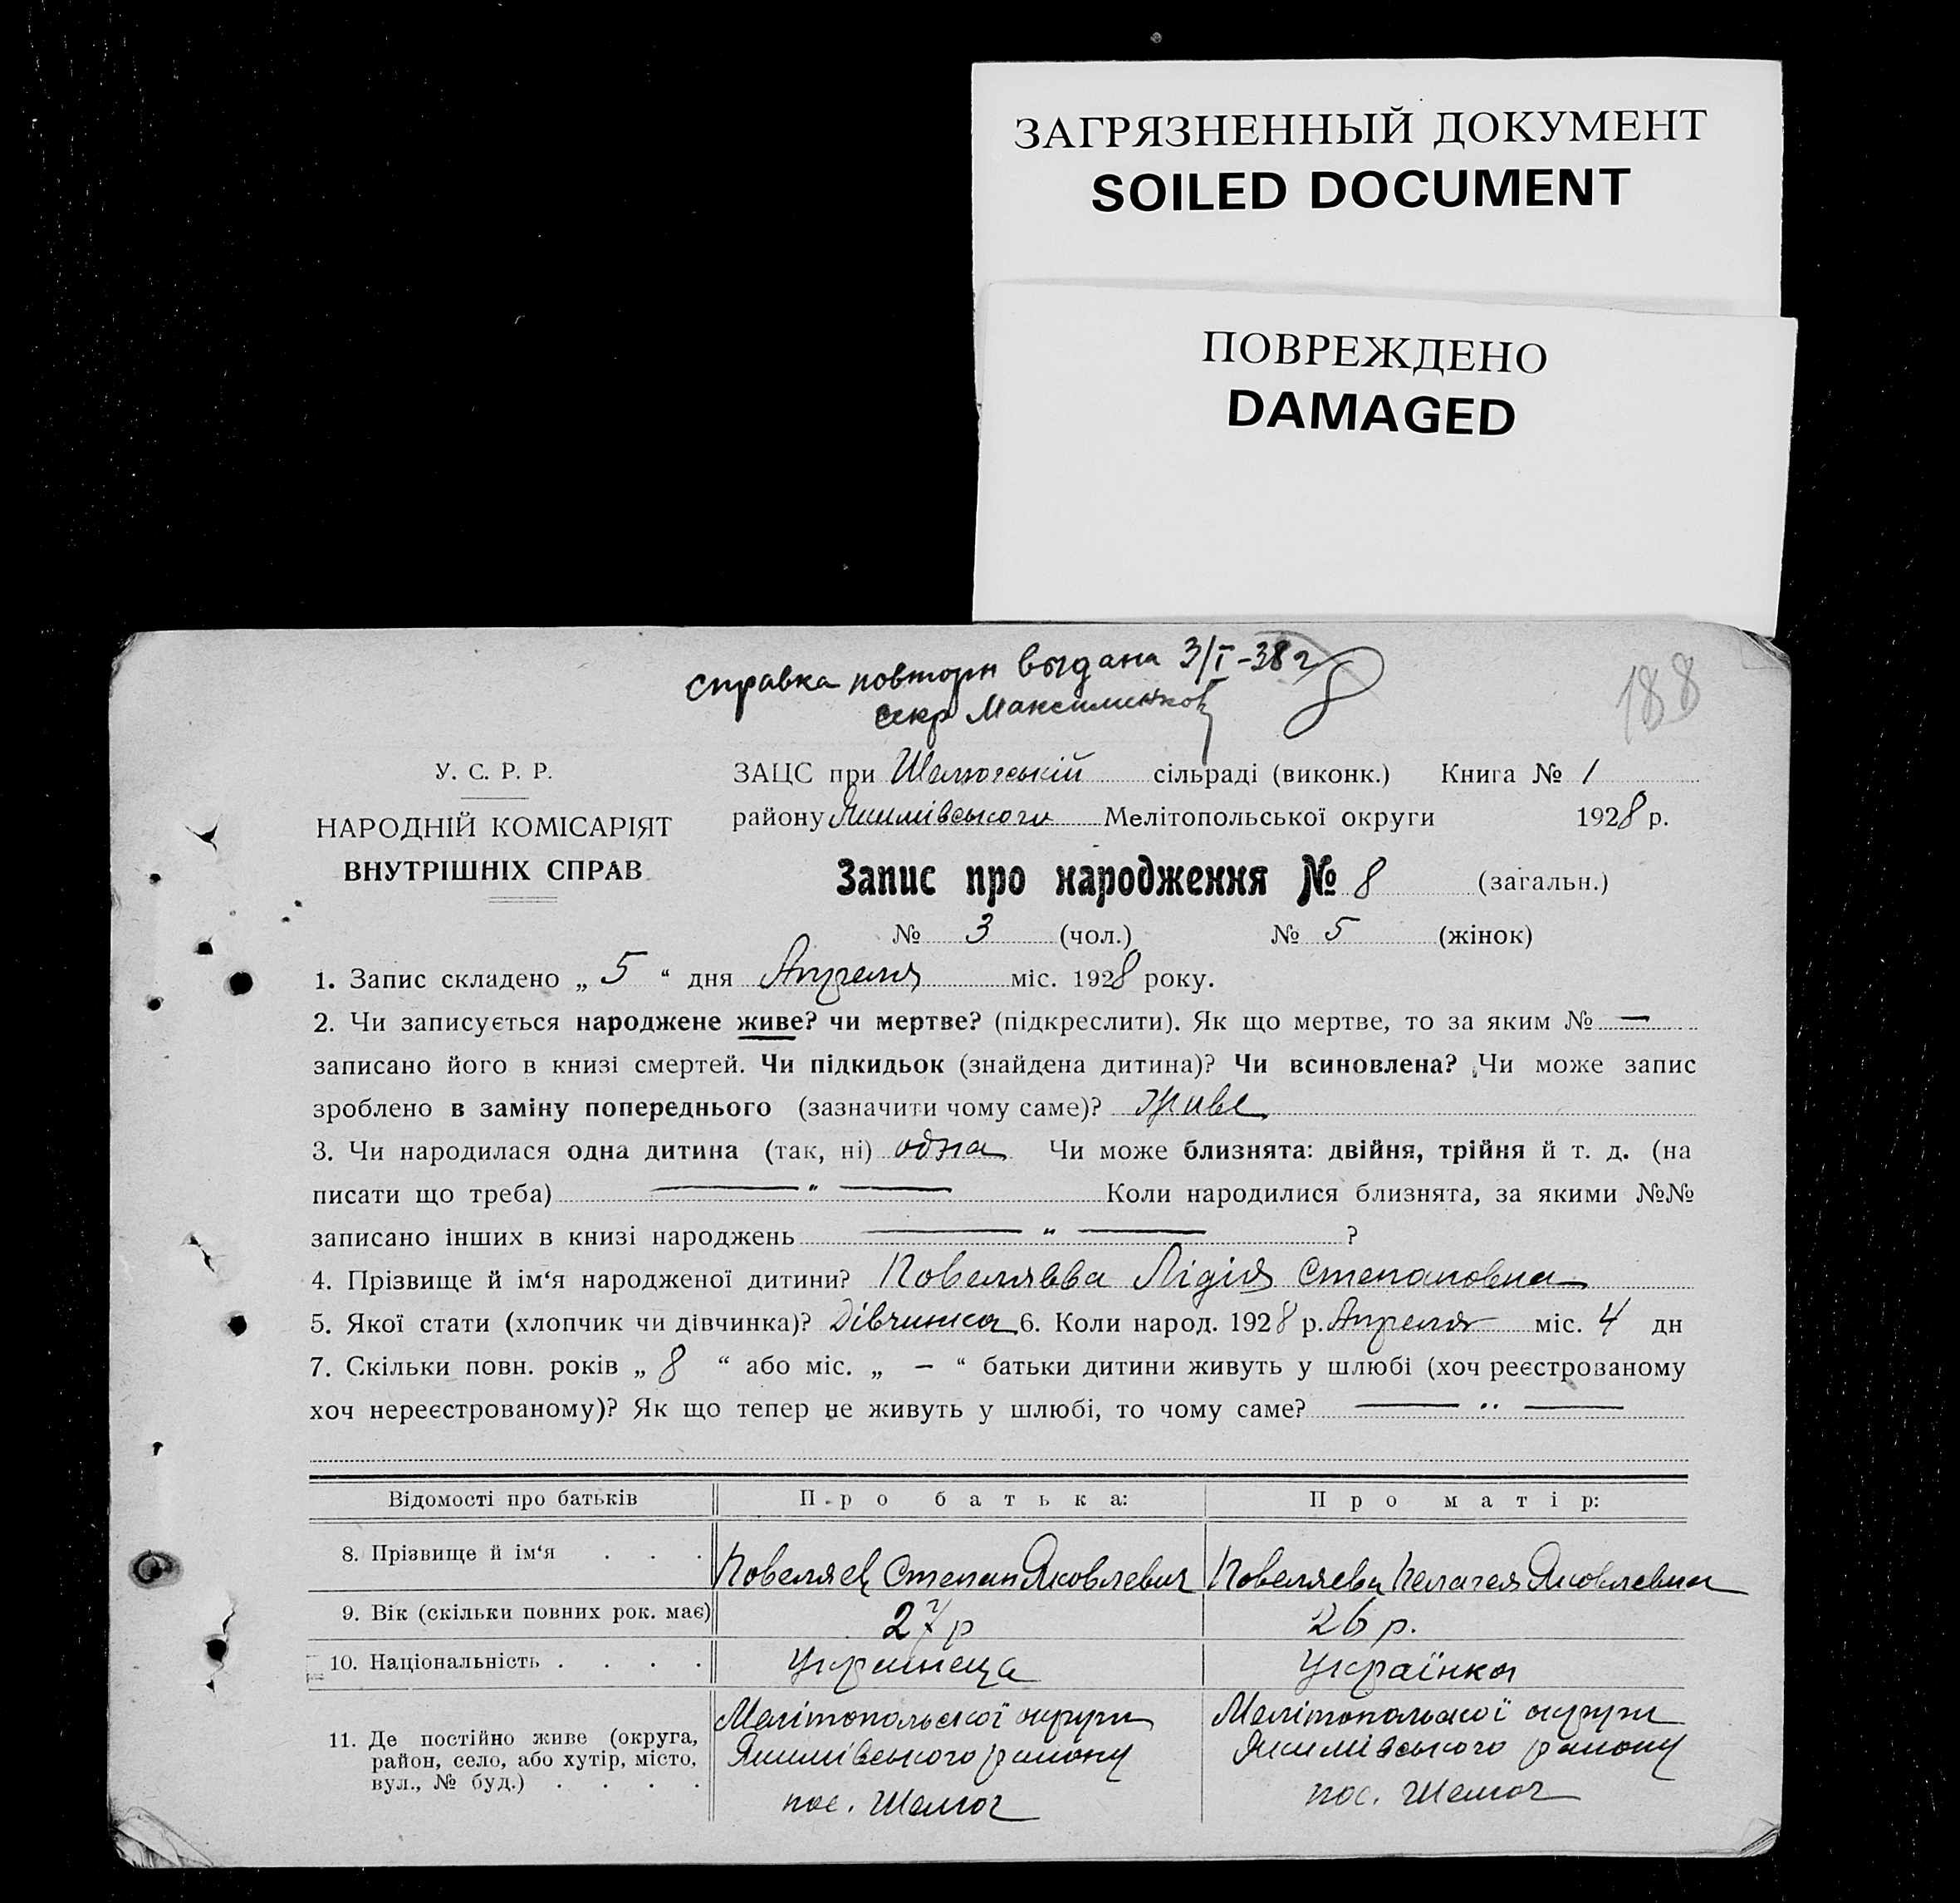 ЗАГРЯЗНЕННЫЙ ДОКУМЕНТ
SOILED DOCUMENT
ПОВРЕЖДЕНО
DAMAGED
справка повторн выдана 3/I-38 г
секр
188
У. С. Р. Р.
НАРОДНІЙ КОМІСАРІЯТ
ВНУТРІШНІХ СПРАВ
ЗАЦС при сільраді (виконк.) Книга № 1
району Якимівського Мелітопольської округи 1928 р.
Запис про народження № 8 (загальн.)
№ 3 (чол.) № 5 (жінок)
1. Запис складено „ 5 “ дня Апреля міс. 1928 року.
2. Чи записується народжене живе? чи мертве? (підкреслити). Як що мертве, то за яким № —
записано його в книзі смертей. Чи підкидьок (знайдена дитина)? Чи всиновлена? Чи може запис
зроблено в заміну попереднього (зазначити чому саме)? живе
3. Чи народилася одна дитина (так, ні) одна Чи може близнята: двійня, трійня й т. д. (на
писати що треба) — „ — Коли народилися близнята, за якими №№
записано інших в книзі народжень — „ — ?
4. Прізвище й ім‘я народженої дитини? Лідія Степановна
5. Якої стати (хлопчик чи дівчинка)? Дівчинка 6. Коли народ. 1928 р. Апреля міс. 4 дн
7. Скільки повн. років „ 8 “ або міс. „ — “ батьки дитини живуть у шлюбі (хоч реєстрованому
хоч нереєстрованому)? Як що тепер не живуть у шлюбі, то чому саме? — „ —
Відомості про батьків Про батька: Про матір:
8. Прізвище й ім‘я . . . Степан Яковлевич Пелагея Яковлевна
9. Вік (скільки повних рок. має) 27 р 26 р.
10. Національність . . . . Українка
11. Де постійно живе (округа,
район, село, або хутір, місто,
вул., № буд.) . . . .
Мелітопольскої округи
Якимівського району
пос. Шелюг
Мелітопольської округи
Якимівського району
пос. Шелюг